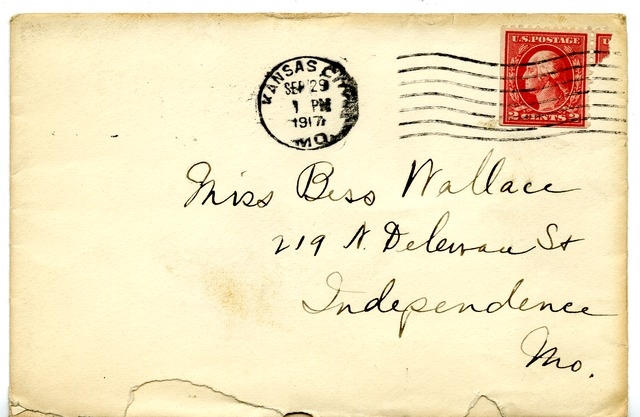 KANSAS CITY
SEP 29
1 PM
1917
MO.
U.S. POSTAGE
2 CENTS 2
Miss Bess Wallace
219 N. Delewau St
Independence
Mo.